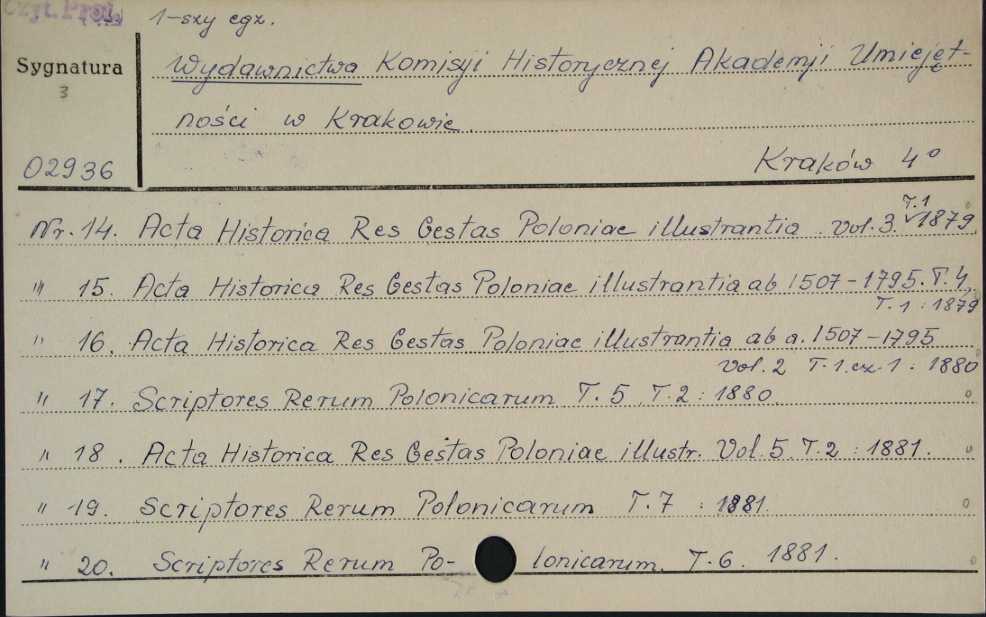 Czyt. Prof.
1-szy egz.
Sygnatura
3
02936
Wydawnictwa Komisji Historycznej Akademji Umiejęt-
ności w Krakowie.
Kraków 4°
Nr. 14. Acta Historica Res Gestas Poloniae illustrantia Vol. 3. T.1 1879
" 15. Acta Historica Res Gestas Poloniae illustrantia ab 1507-1795. T. 4,
T. 1 : 1879
" 16. Acta Historica Res Gestas Poloniae illustrantia ab a. 1507-1795
Vol. 2 T. 1. cz. 1 : 1880
" 17. Scriptores Rerum Polonicarum T. 5 T. 2 : 1880
" 18. Acta Historica Res Gestas Poloniae illustr. Vol. 5. T. 2 : 1881.
" 19. Scriptores Rerum Polonicarum T. 7 : 1881
" 20. Scriptores Rerum Po- lonicarum. T. 6. 1881.